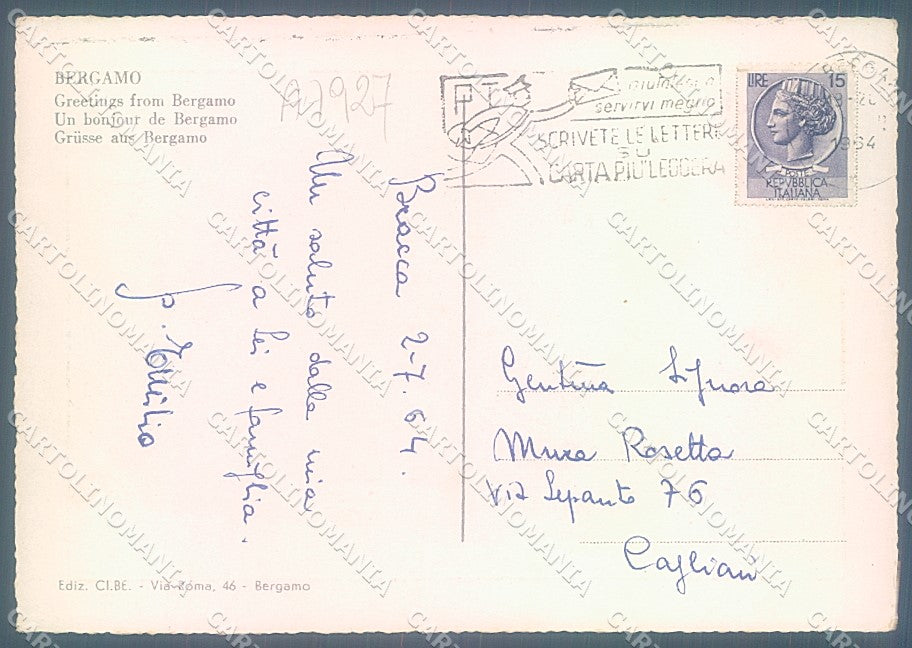 BERGAMO
Greetings from Bergamo
Un bonjour de Bergamo
Grüsse aus Bergamo
97927
Bracca 2-7.64.
Un saluto dalla mia
città a lei e famiglia.
p. Emilio
Ediz. CI.BE. - Via Zoma, 46 - Bergamo
PT
aiutateci a
servirvi meglio
SCRIVETE LE LETTERE
SU
CARTA PIU' LEGGERA
LIRE 15
POSTE
REPVBBLICA
ITALIANA
1964
Gentil.ma Signora
Mura Rosetta
Via Lepanto 76
Cagliari
CARTOLINOMANIA